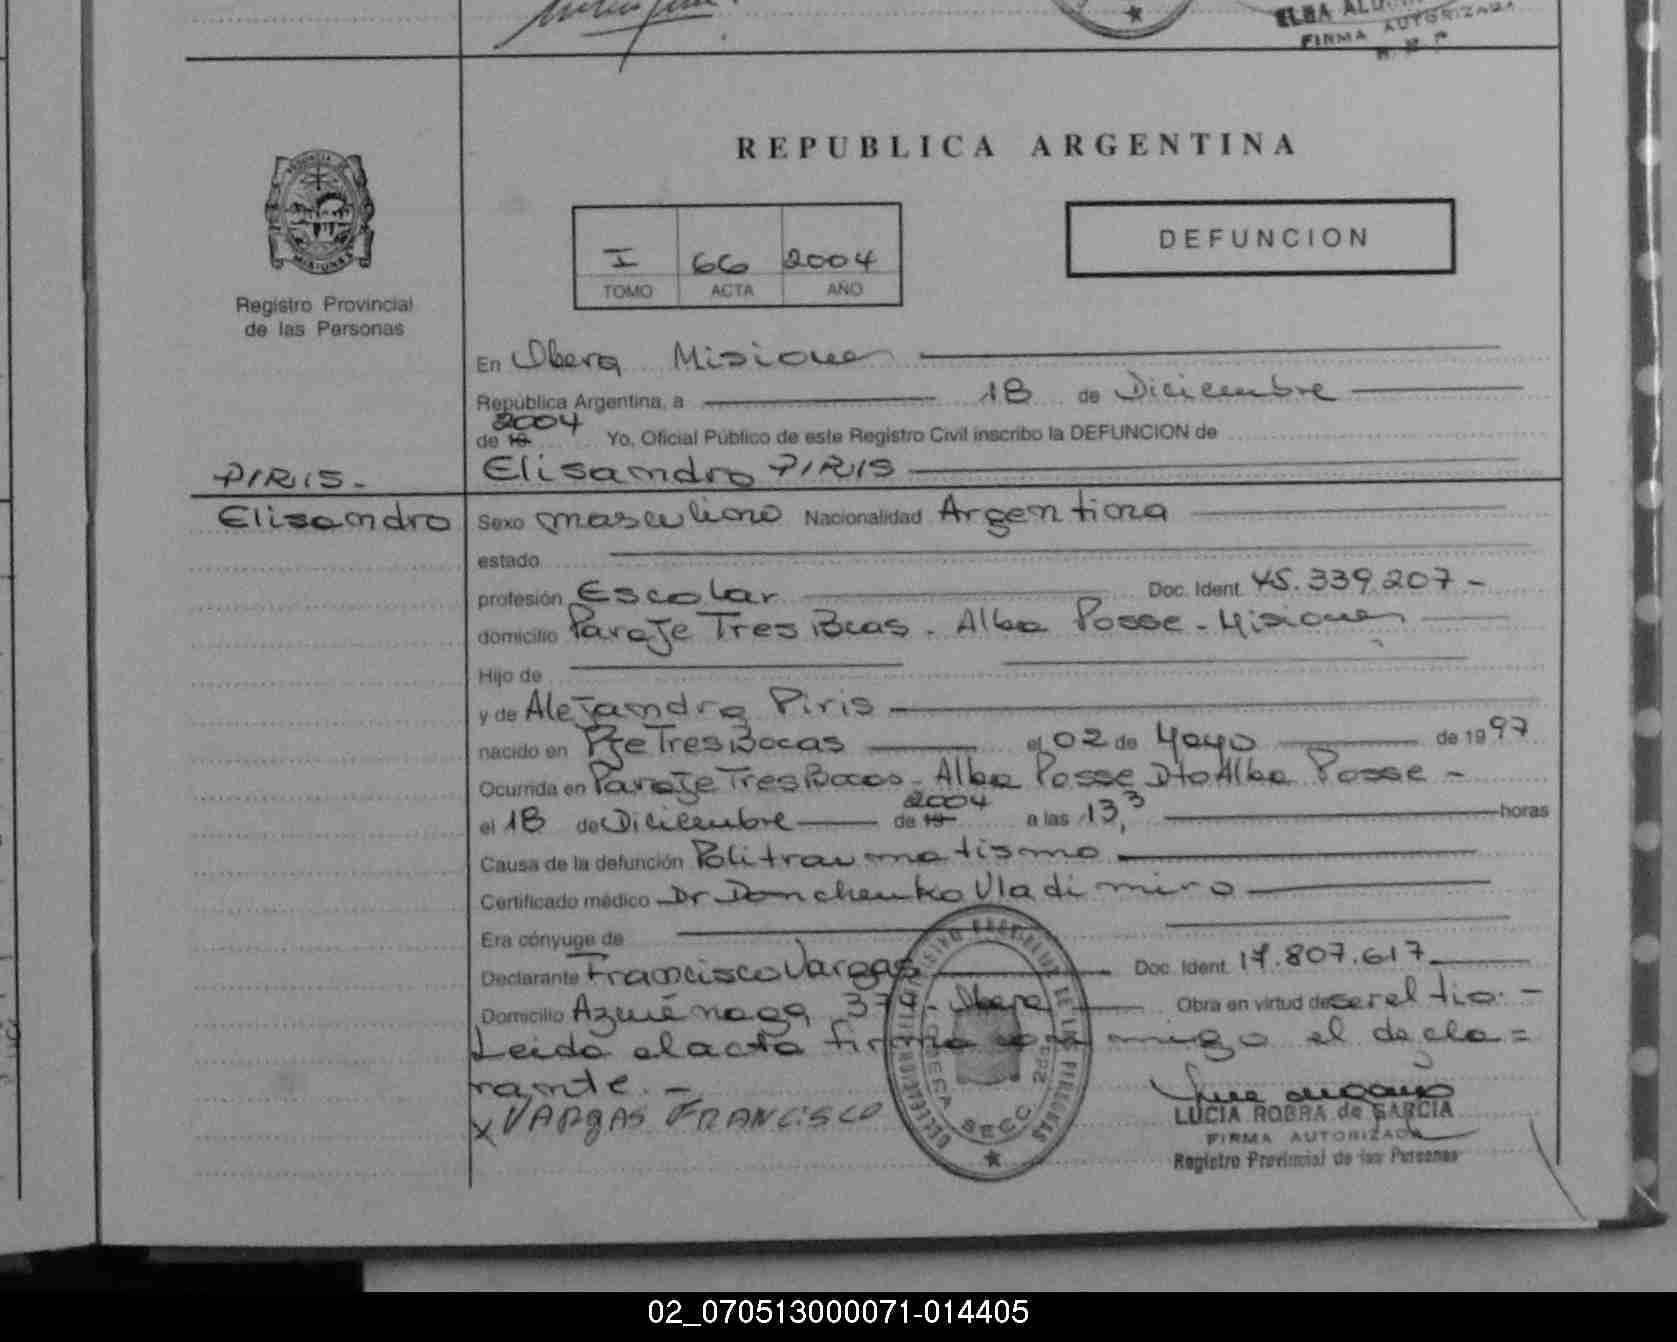 ELBA
FIRMA AUTORIZADA
R. P. P.
REPUBLICA ARGENTINA
PROVINCIA DE
MISIONES
Registro Provincial
de las Personas
I 66 2004
TOMO ACTA AÑO
DEFUNCION
En Obera Misiones
República Argentina, a 18 de Diciembre
2004
de 19 Yo, Oficial Público de este Registro Civil inscribo la DEFUNCION de
PIRIS.-
Elisandro PIRIS
Elisandro
Sexo masculino Nacionalidad Argentina
estado
profesión Escolar Doc. Ident. 45.339.207-
domicilio Paraje Tres Bcas. Alba Posse - Misiones
Hijo de
y de Alejandra Piris
nacido en Pje Tres Bocas el 02 de Mayo de 1997
Ocurrida en Paraje Tres Bocas - Alba Posse Dto Alba Posse -
2004
el 18 de Diciembre de 19 a las 13,3 horas
Causa de la defunción Politraumatismo
Certificado médico Dr Donchenko Vladimiro
Era cónyuge de
Declarante Francisco Vargas Doc. Ident. 17.807.617
Domicilio Azcuénaga 379 - Obera Obra en virtud de ser el tio. -
Leida el acta firma conmigo el decla=
rante. -
x VARGAS FRANCISCO
LUCIA ROBRA de GARCIA
FIRMA AUTORIZADA
Registro Provincial de las Personas
02_070513000071-014405